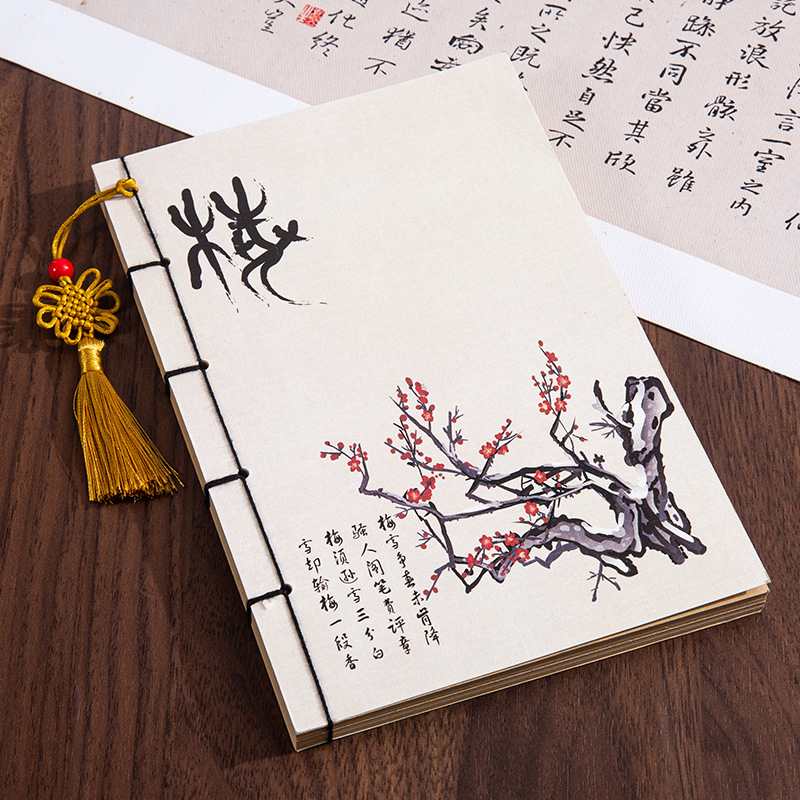 梅
梅雪争春未肯降
骚人阁笔费评章
梅须逊雪三分白
雪却输梅一段香
言一室之内
放浪形骸之外雖
静躁不同當其欣
己快然自足不
之既
矣向
迹猶不
化終